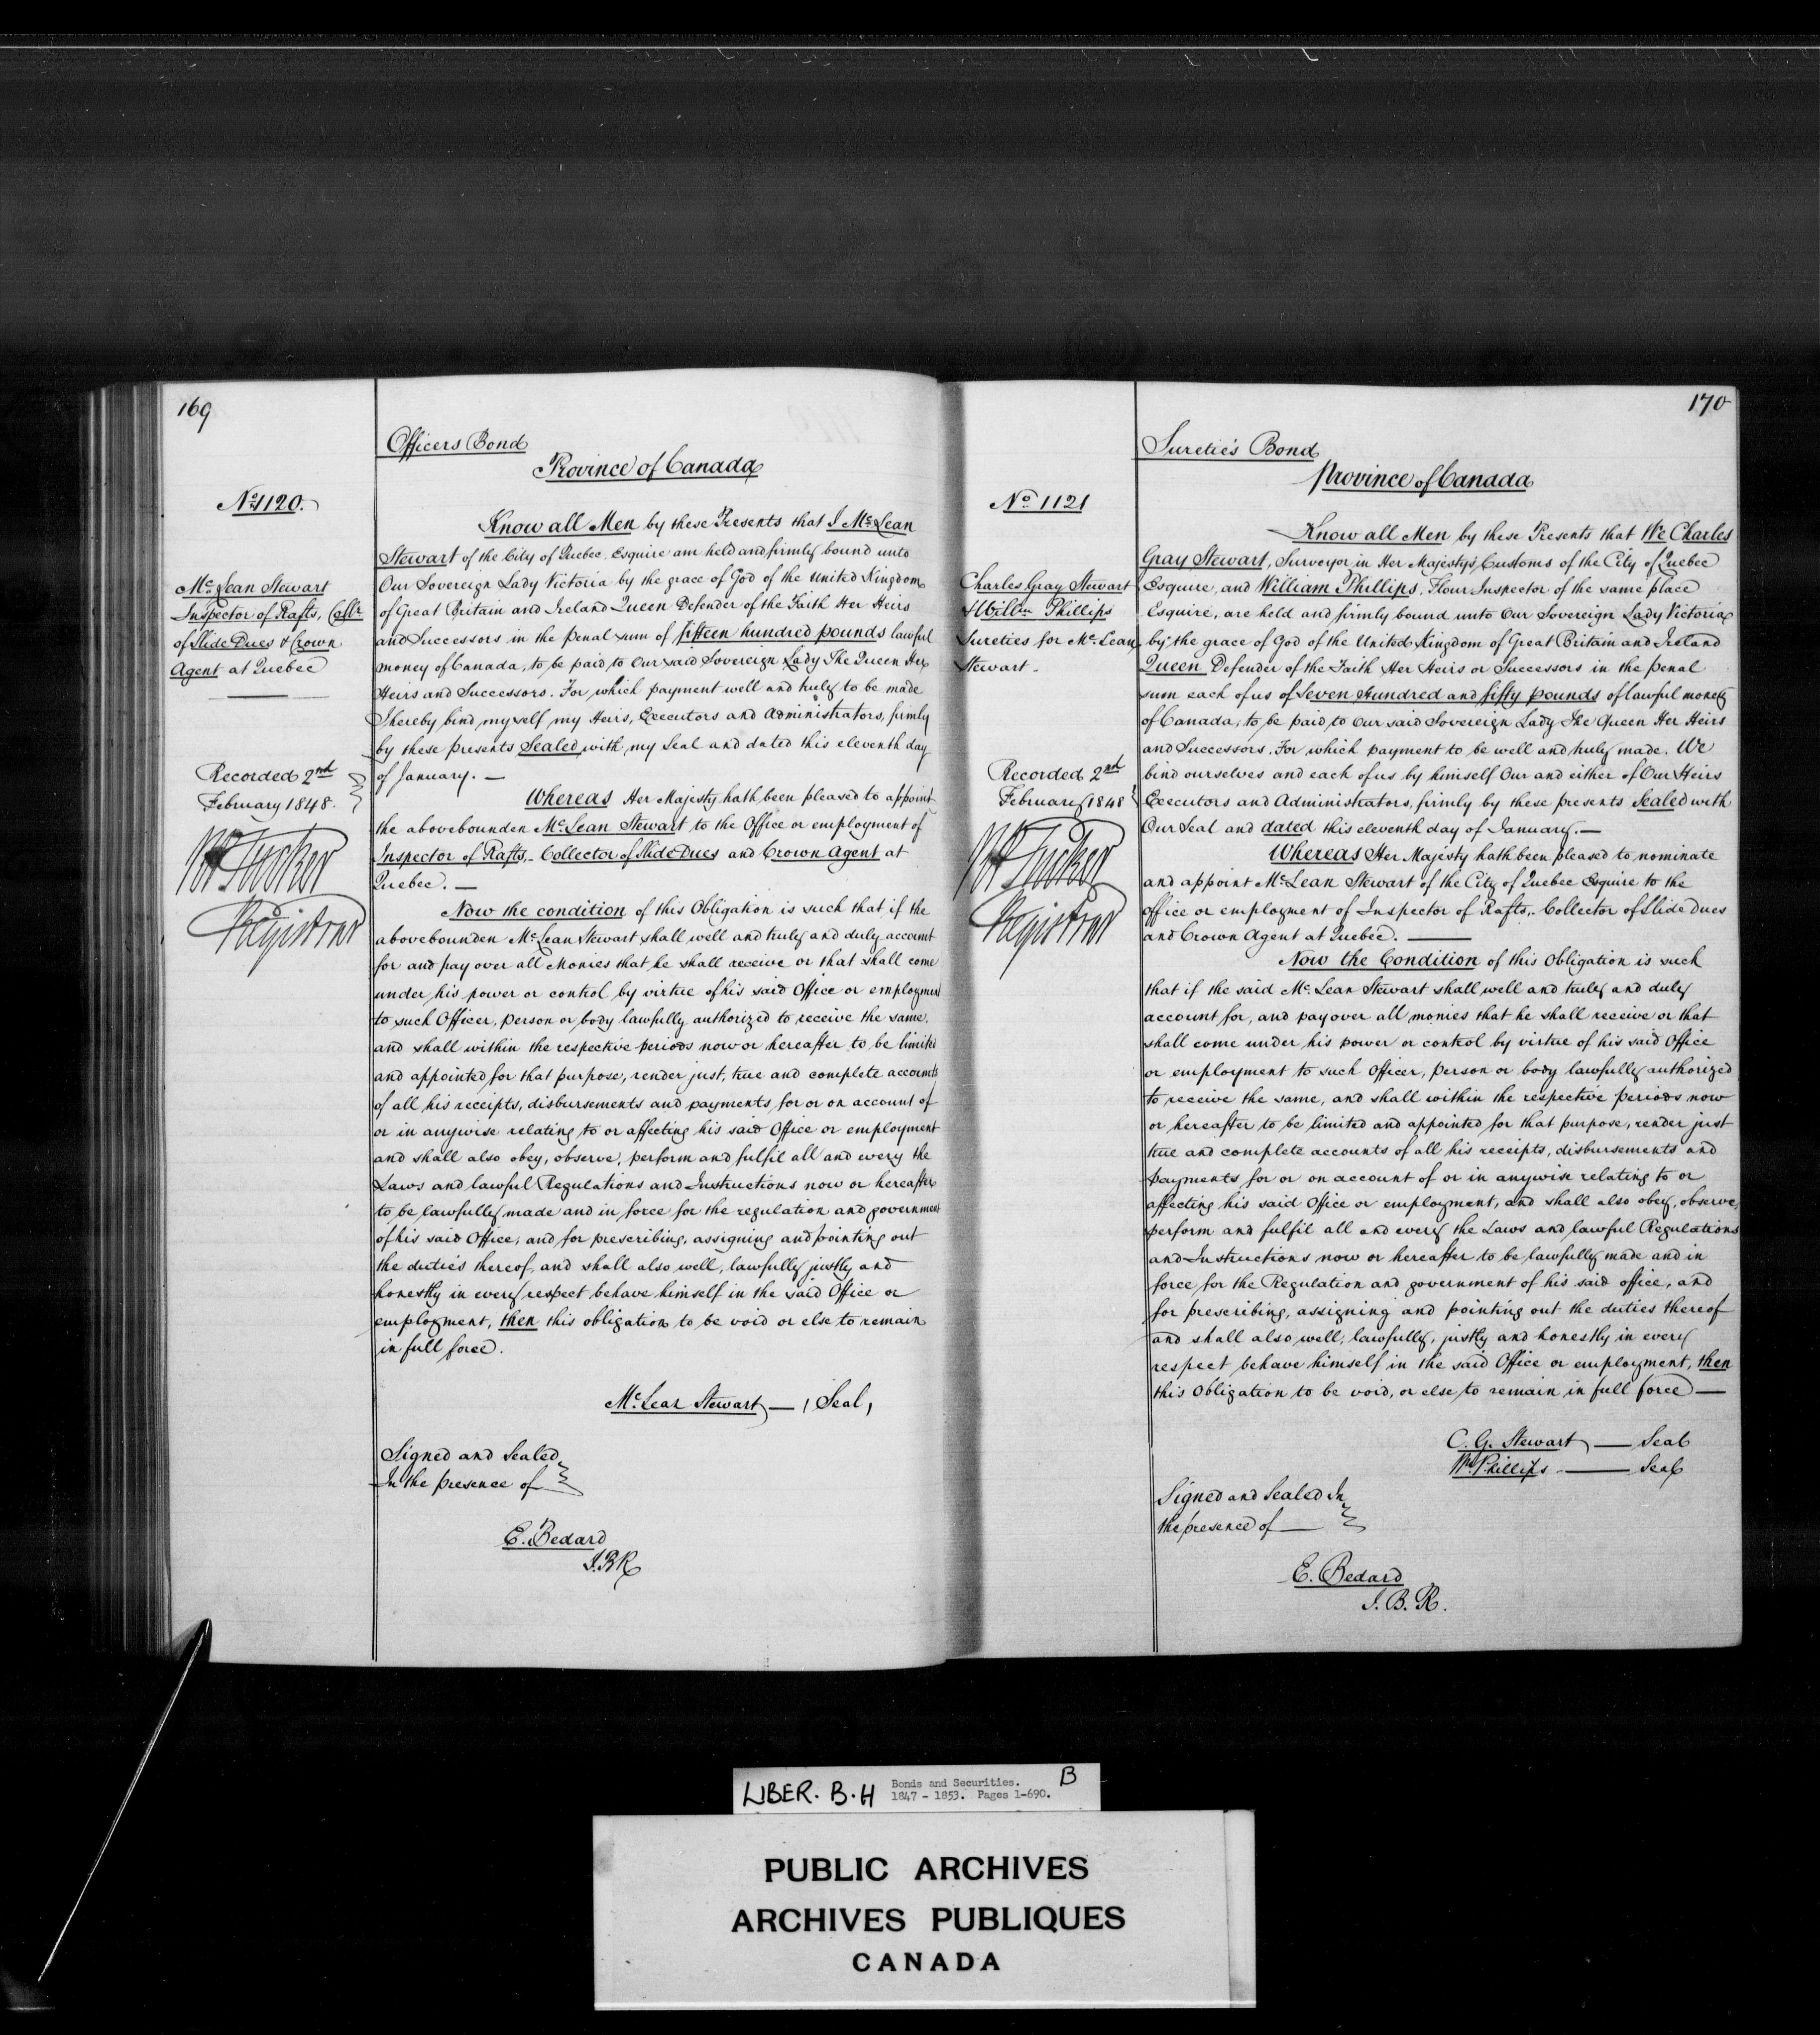 169
Officers Bond
Province of Canada
No. 1120.
Know all Men by these Presents that I Mc.Lean
Stewart of the City of Quebec. Esquire am held and firmly bound unto
Our Sovereign Lady Victoria by the grace of God of the United Kingdom
of Great Britain and Ireland Queen Defender of the Faith Her Heirs
and Successors in the penal sum of fifteen hundred pounds lawful
money of Canada, to be paid to Our said Sovereign Lady The Queen Her
Heirs and Successors. For which payment well and truly to be made
I hereby bind myself my Heirs, Executors and Administrators, firmly
by these presents Sealed with my Seal and dated this eleventh day
of January. —
Mc. Lean Stewart
Inspector of Rafts, Collr
of Slide Dues & Crown
Agent at Quebec
Recorded 2nd
February 1848.
Tucker
Registrar
Whereas Her Majesty hath been pleased to appoint
the abovebounden Mc.Lean Stewart to the Office or employment of
Inspector of Rafts,- Collector of Slide Dues and Crown Agent at
Quebec. —
Now the condition of this Obligation is such that if the
abovebounden Mc.Lean Stewart shall well and truly and duly account
for and pay over all Monies that he shall receive or that shall come
under his power or control by virtue of his said Office or employment
to such Officer, person or body lawfully authorized to receive the same.
and shall within the respective periods now or hereafter to be limited
and appointed for that purpose, render just, true and complete accounts
of all his receipts, disbursements and payments for or on account of
or in anywise relating to or affecting his said Office or employment
and shall also obey, observe, perform and fulfil all and every the
Laws and lawful Regulations and Instructions now or hereafter
to be lawfully made and in force for the regulation and government
of his said Office, and for prescribing, assigning and pointing out
the duties thereof, and shall also well, lawfully justly and
honestly in every respect behave himself in the said Office or
employment, then this obligation to be void or else to remain
in full force.
Mc. Lean Stewart — (Seal)
Signed and Sealed
In the presence of
E. Bedard
J.B.R
170
Suretie's Bond
Province of Canada
No. 1121
Know all Men by these Presents that We Charles
Gray Stewart, Surveyor in Her Majesty's Customs of the City of Quebec
Esquire, and William Phillips, Flour Inspector of the same place
Esquire, are held and firmly bound unto Our Sovereign Lady Victoria
by the grace of God of the United Kingdom of Great Britain and Ireland
Queen Defender of the Faith Her Heirs or Successors in the penal
sum each of us of Seven Hundred and fifty pounds of lawful money
of Canada, to be paid to Our said Sovereign Lady The Queen Her Heirs
and Successors. For which payment to be well and truly made. We
bind ourselves and each of us by himself Our and either of Our Heirs
Executors and Administrators, firmly by these presents Sealed with
Our Seal and dated this eleventh day of January. —
Charles Gray Stewart
& Willm Phillips
Sureties for Mc. Lean
Stewart -
Recorded 2nd
February 1848
Tucker
Registrar
Whereas Her Majesty hath been pleased to nominate
and appoint Mc.Lean Stewart of the City of Quebec Esquire to the
office or employment of Inspector of Rafts,. Collector of Slide Dues
and Crown Agent at Quebec. —
Now the Condition of this Obligation is such
that if the said Mc. Lean Stewart shall well and truly and duly
account for, and pay over all monies that he shall receive or that
shall come under his power or control by virtue of his said Office
or employment to such Officer, person or body lawfully authorized
to receive the same, and shall within the respective periods now
or hereafter to be limited and appointed for that purpose, render just
true and complete accounts of all his receipts, disbursements and
payments for or on account of or in anywise relating to or
affecting his said Office or employment, and shall also obey, observe,
perform and fulfil all and every the Laws and lawful Regulations
and Instructions now or hereafter to be lawfully made and in
force for the Regulation and government of his said office, and
for prescribing, assigning and pointing out the duties thereof
and shall also well, lawfully, justly and honestly in every
respect behave himself in the said Office or employment, then
this Obligation to be void, or else to remain in full force —
C. G. Stewart — Seal
Wm. Phillips — Seal
Signed and Sealed In
the presence of —
E. Bedard
J. B. R.
LIBER. B.H
Bonds and Securities.
1847 - 1853. Pages 1-690.
B
PUBLIC ARCHIVES
ARCHIVES PUBLIQUES
CANADA